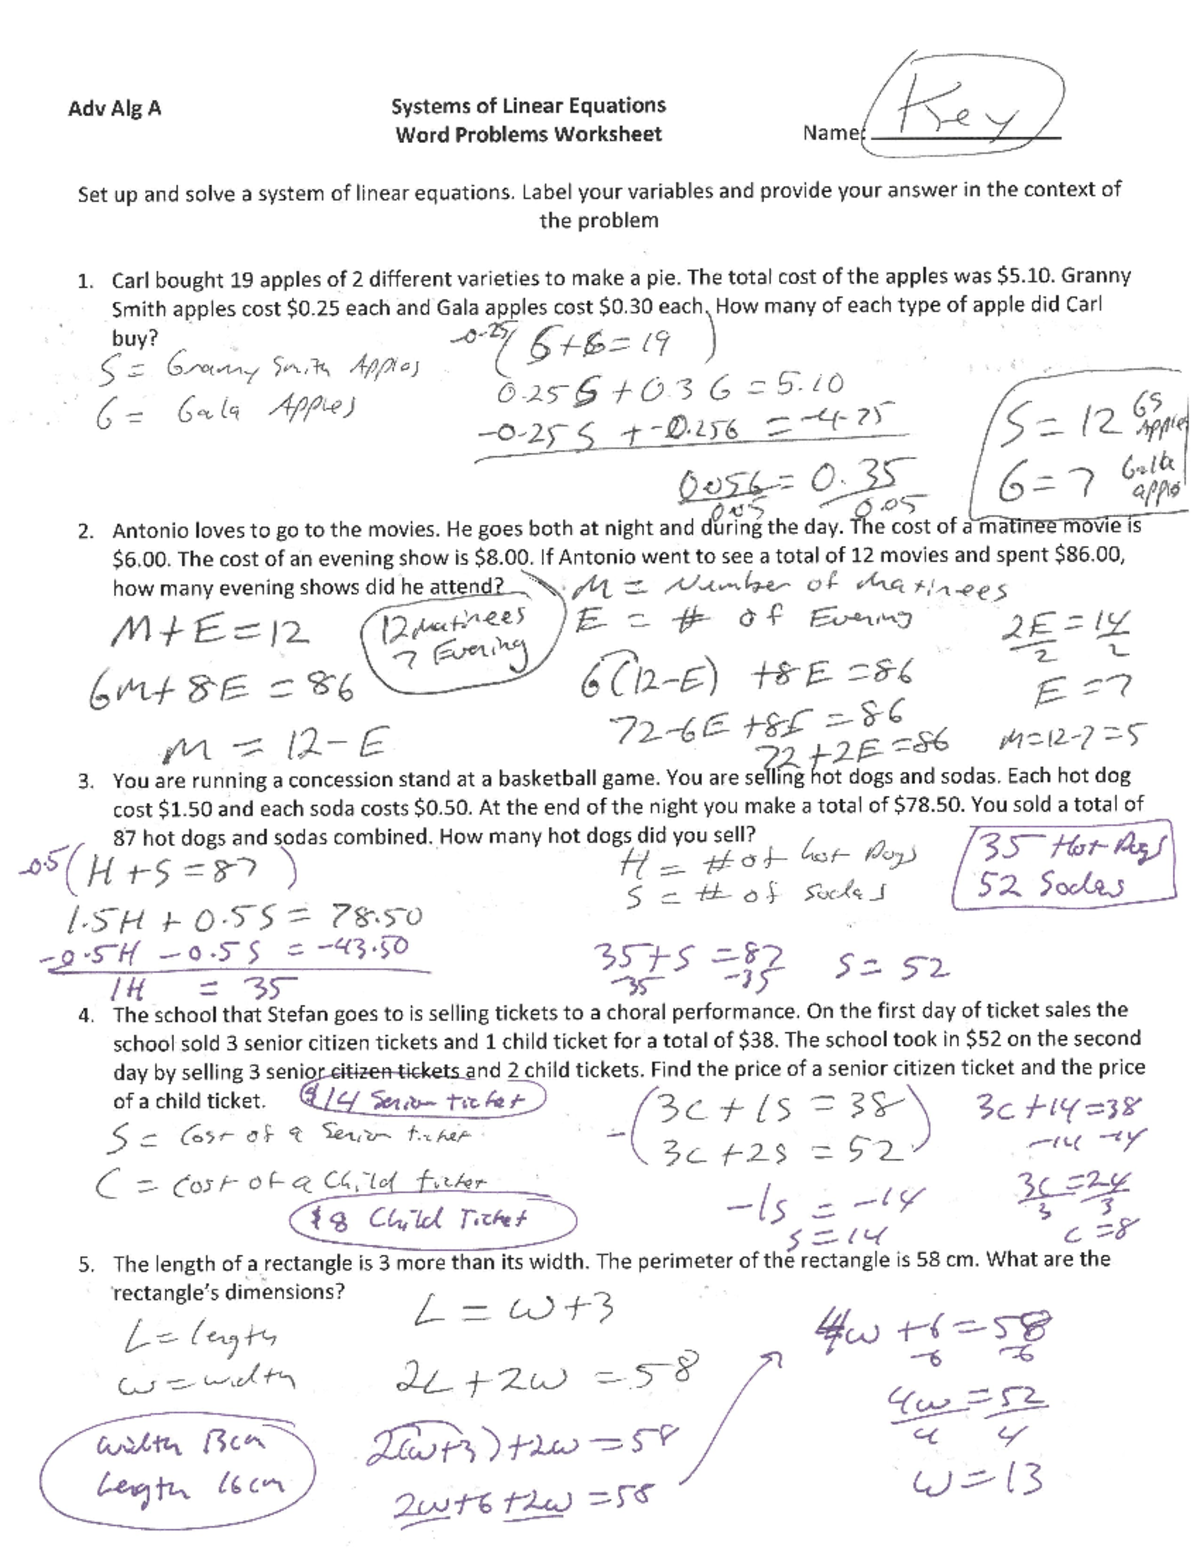 Adv Alg A
Systems of Linear Equations
Word Problems Worksheet
Name: Key
Set up and solve a system of linear equations. Label your variables and provide your answer in the context of
the problem
1. Carl bought 19 apples of 2 different varieties to make a pie. The total cost of the apples was $5.10. Granny
Smith apples cost $0.25 each and Gala apples cost $0.30 each. How many of each type of apple did Carl
buy?
-0.25( S+G=19 )
S = Granny Smith Apples
G = Gala Apples
0.25S + 0.3G = 5.10
-0.25S + -0.25G = -4.75
0.05G = 0.35
0.05 0.05
S = 12 GS Apples
G = 7 Gala apples
2. Antonio loves to go to the movies. He goes both at night and during the day. The cost of a matinee movie is
$6.00. The cost of an evening show is $8.00. If Antonio went to see a total of 12 movies and spent $86.00,
how many evening shows did he attend?
M = Number of Matinees
E = # of Evening
M+E=12
6M+8E=86
M = 12-E
12 Matinees
7 Evening
6(12-E) +8E=86
72-6E+8E=86
72+2E=86
2E=14
2 2
E=7
M=12-7=5
3. You are running a concession stand at a basketball game. You are selling hot dogs and sodas. Each hot dog
cost $1.50 and each soda costs $0.50. At the end of the night you make a total of $78.50. You sold a total of
87 hot dogs and sodas combined. How many hot dogs did you sell?
-0.5(H+S=87)
1.5H + 0.5S = 78.50
-0.5H - 0.5S = -43.50
1H = 35
H = # of hot Dogs
S = # of Sodas
35+S=87
-35 -35
S=52
35 Hot Dogs
52 Sodas
4. The school that Stefan goes to is selling tickets to a choral performance. On the first day of ticket sales the
school sold 3 senior citizen tickets and 1 child ticket for a total of $38. The school took in $52 on the second
day by selling 3 senior citizen tickets and 2 child tickets. Find the price of a senior citizen ticket and the price
of a child ticket.
$14 Senior ticket
S = Cost of a Senior ticket
C = Cost of a Child ticket
$8 Child Ticket
3C+1S=38
-(3C+2S=52)
-1S=-14
S=14
3C+14=38
-14 -14
3C=24
3 3
C=8
5. The length of a rectangle is 3 more than its width. The perimeter of the rectangle is 58 cm. What are the
rectangle's dimensions?
L=length
w=width
width 13cm
Length 16cm
L=w+3
2L+2w=58
2(w+3)+2w=58
2w+6+2w=58
4w+6=58
-6 -6
4w=52
4 4
w=13